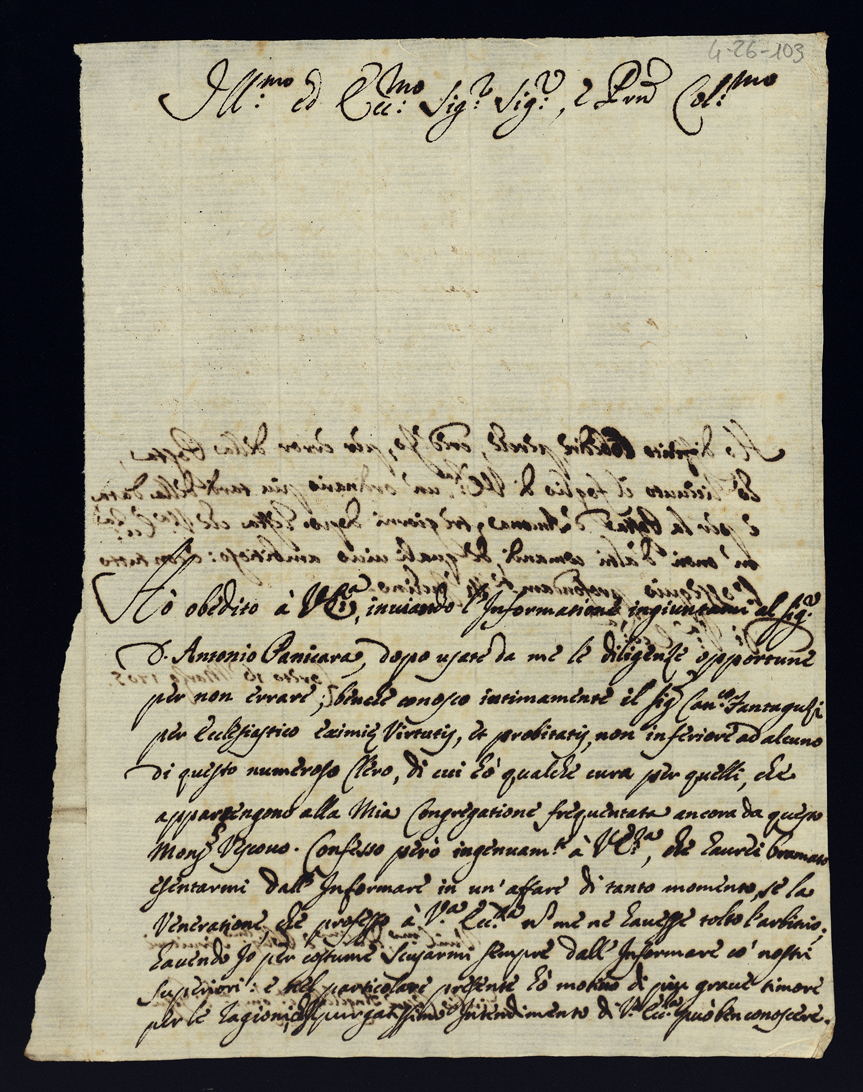 4-26-103
Ill:mo ed Ecc:mo Sig:r Sig:r, e Prn Col:mo
Hò obedito à V. Ecc:a, inviando l'Informatione ingiuntami al Sig:r
D. Antonio Panicara, dopo usate da me le diligenze opportune
per non errare; benche conosco intimamente il Sig:r Can:co Fantaguzzi
per Ecclesiastico Eximię Virtutis, et probitatis, non inferiore ad alcuno
di questo numeroso Clero, di cui hò qualche cura per quelli, che
appartengono alla Mia Congregatione frequentata ancora da questo
Mons:r Vescovo. Confesso però ingenuam:te à V. Ecc:a, che haurei bramato
esentarmi dall'Informare in un'affare di tanto momento, se la
Veneratione, che professo à V.a Ecc:za nõ me ne havesse tolto l'arbitrio;
havendo Io per costume scusarmi sempre dall'Informare co' nostri
Superiori: e nel particolare presente hò motivo di più grave timore
per le ragioni, che il purgatissimo Intendimento di V.a Ecc:za può ben conoscere.